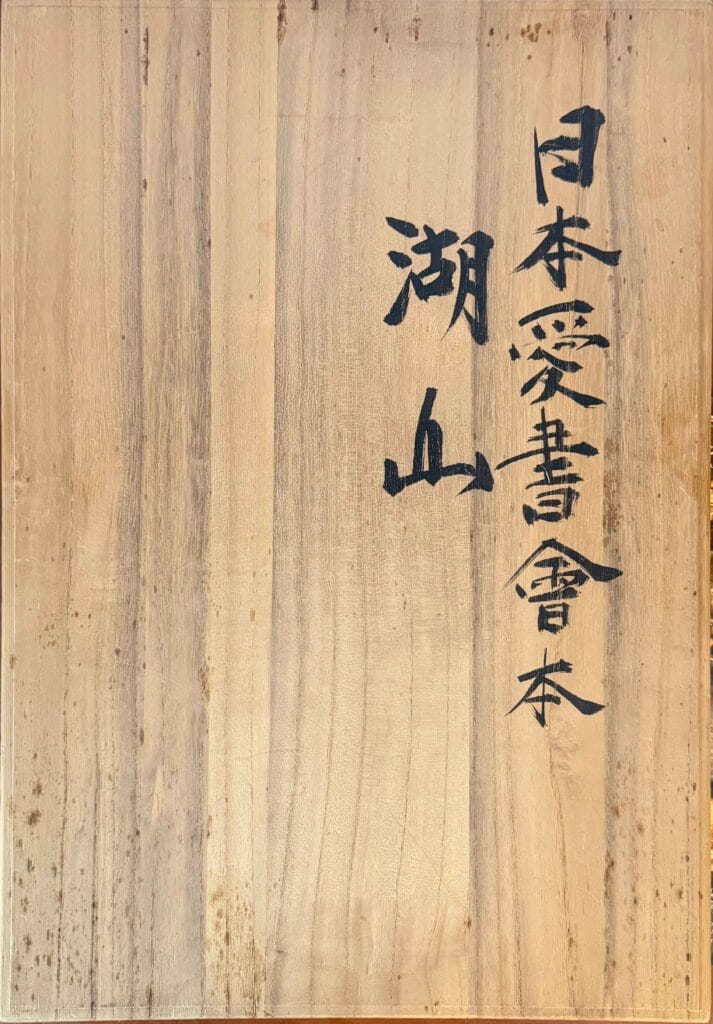 日本愛書會本
湖山